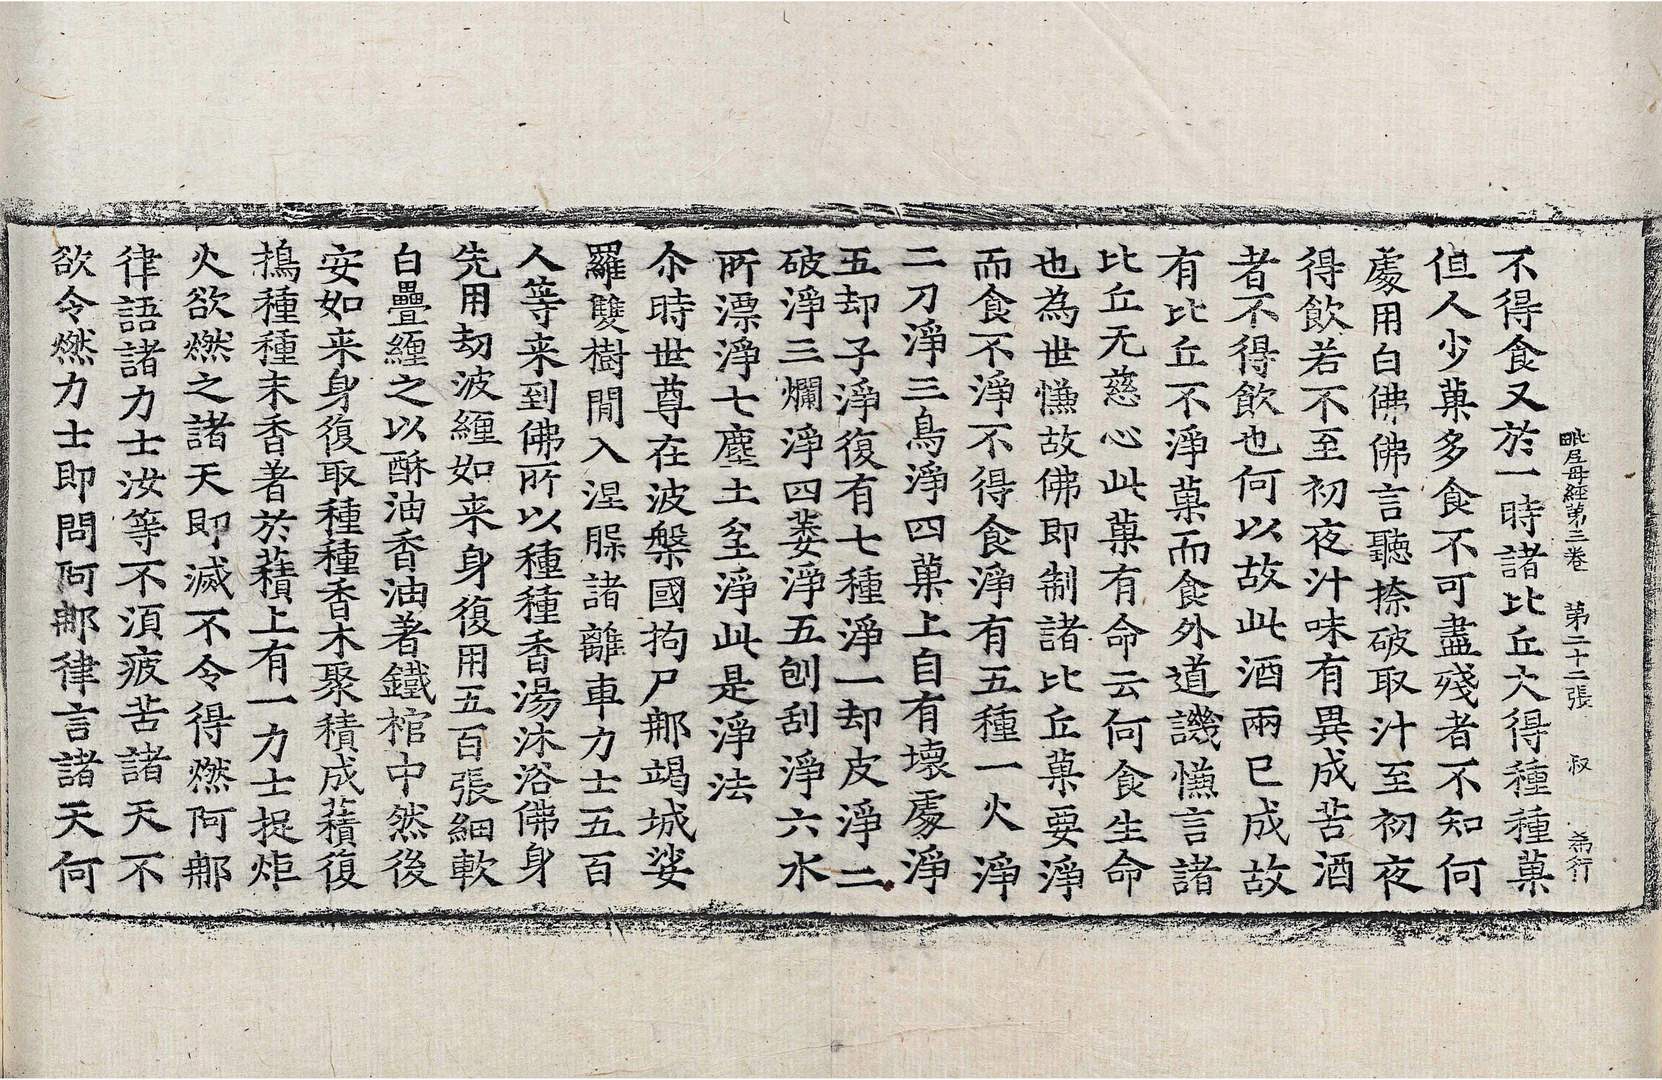 毗尼母經第三卷 第二十二張 叔 希行
不得食又於一時諸比丘大得種種菓
但人少菓多食不可盡殘者不知何
處用白佛佛言聽捺破取汁至初夜
得飲若不至初夜汁味有異成苦酒
者不得飲也何以故此酒兩已成故
有比丘不淨菓而食外道譏慊言諸
比丘无慈心此菓有命云何食生命
也為世慊故佛即制諸比丘菓要淨
而食不淨不得食淨有五種一火淨
二刀淨三鳥淨四菓上自有壞處淨
五却子淨復有七種淨一却皮淨二
破淨三爛淨四萎淨五刨刮淨六水
所漂淨七塵土坌淨此是淨法
尒時世尊在波槃國拘尸郍竭城娑
羅雙樹閒入涅脲諸離車力士五百
人等来到佛所以種種香湯沐浴佛身
先用劫波纏如来身復用五百張細軟
白疊纏之以酥油香油著鐵棺中然後
安如来身復取種種香木聚積成䕪復
擣種種末香著於䕪上有一力士捉炬
火欲燃之諸天即滅不令得燃阿郍
律語諸力士汝等不湏疲苦諸天不
欲令燃力士即問阿郍律言諸天何